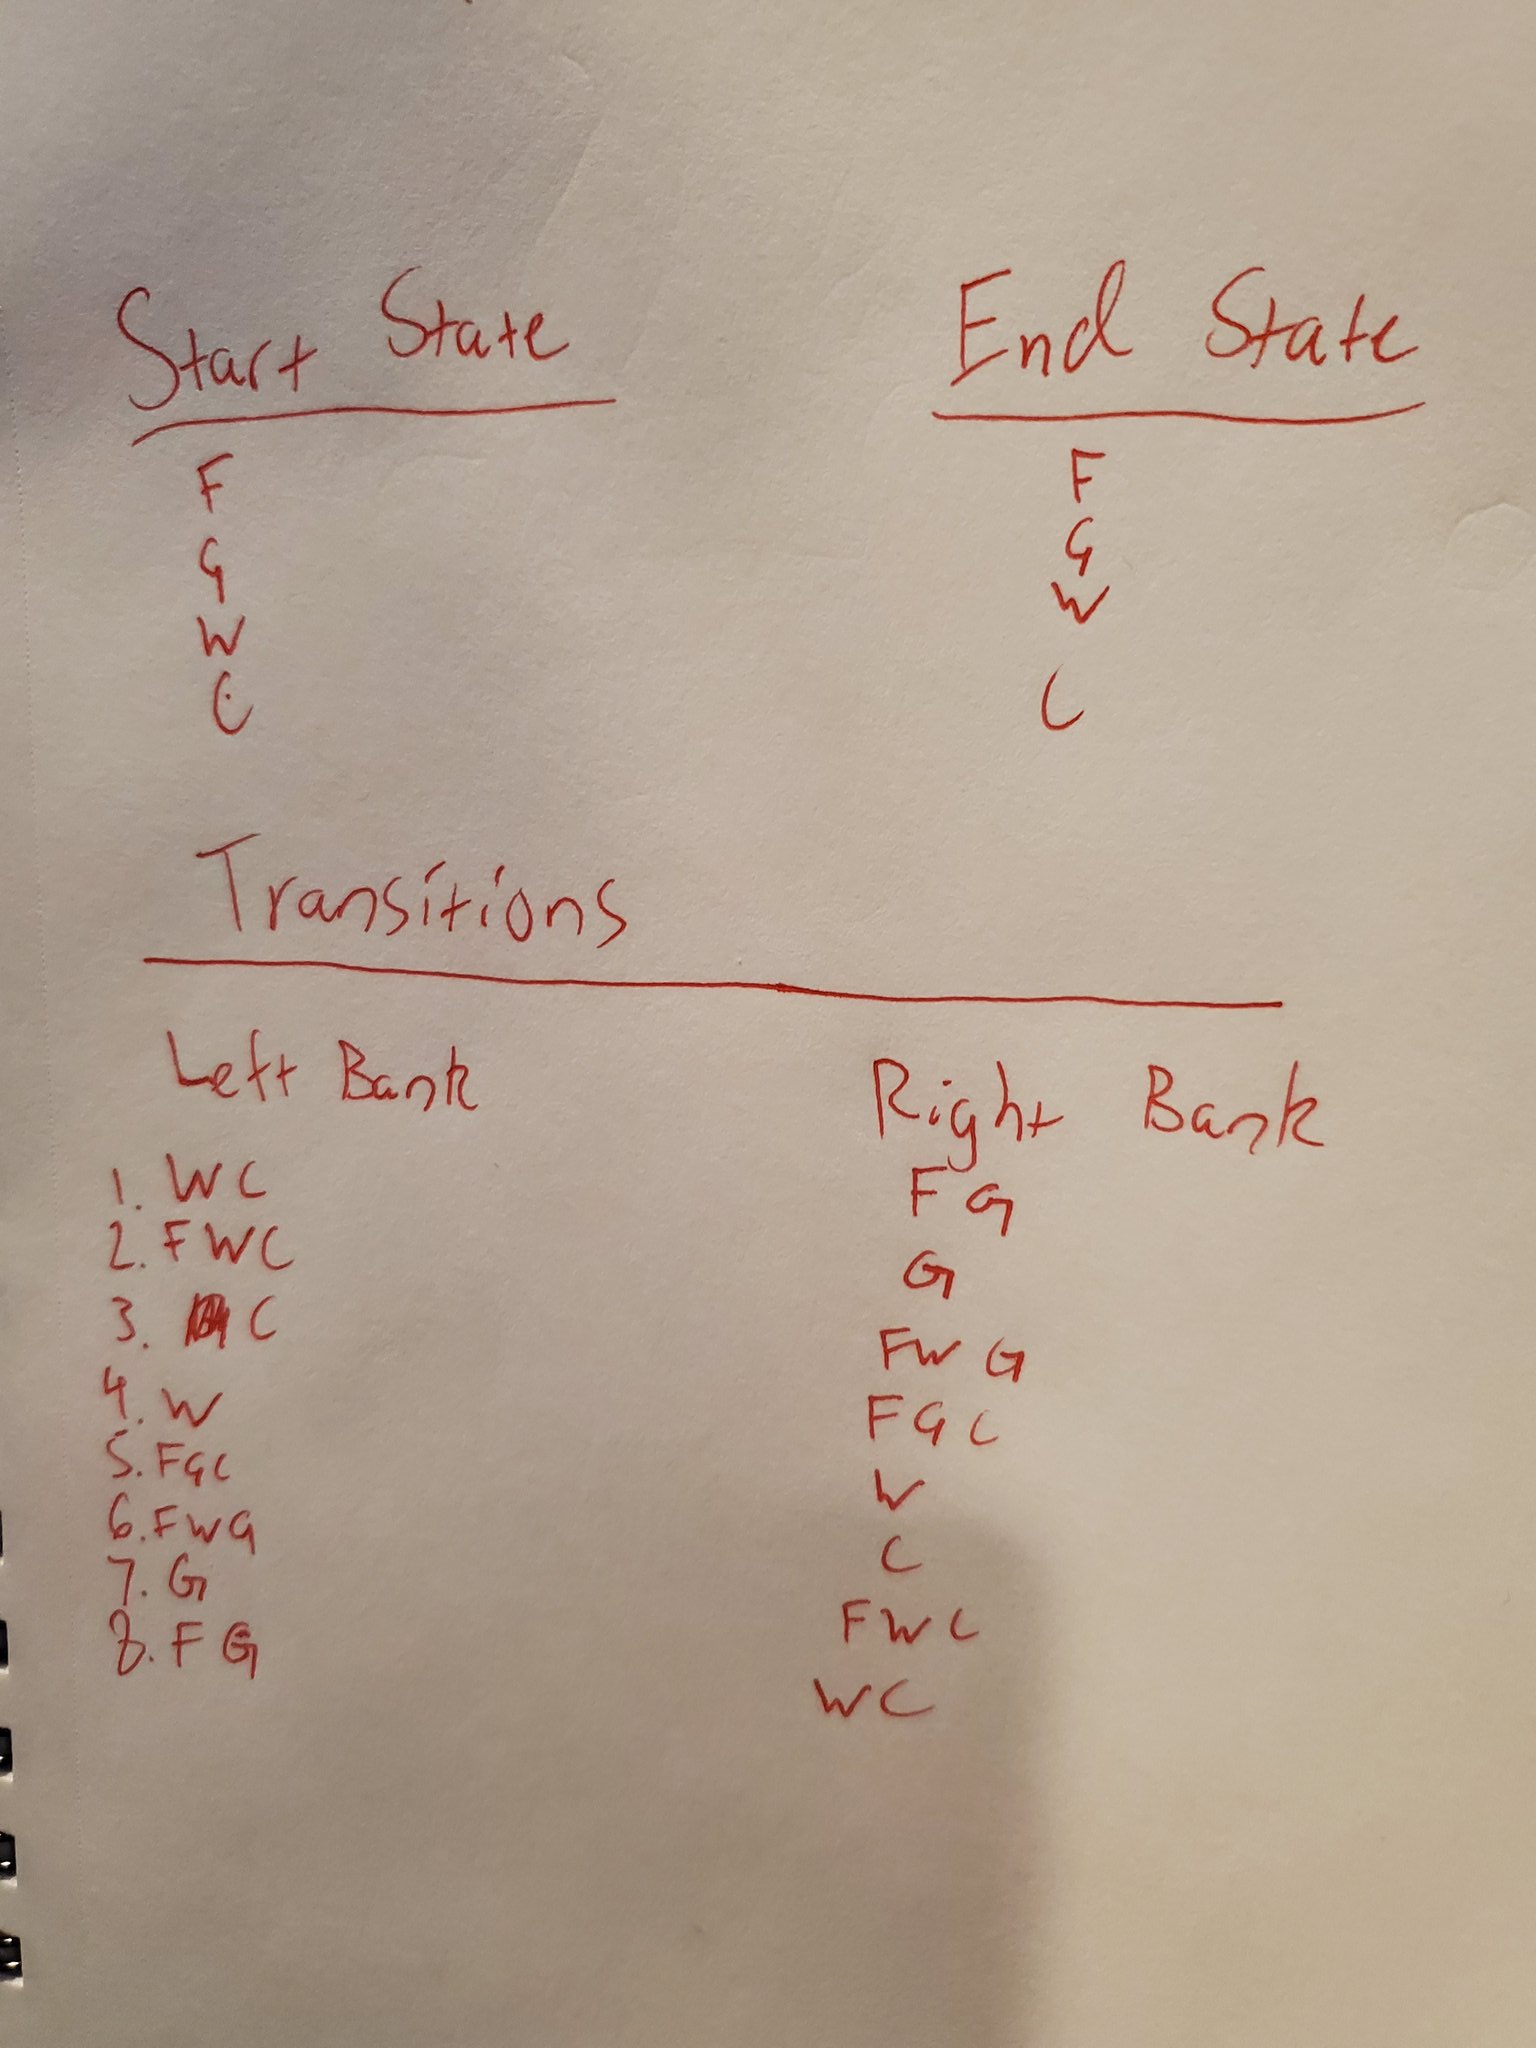 Start State
End State
F
G
W
C
F
G
W
C
Transitions
Left Bank
Right Bank
1. WC
FG
2. FWC
G
3. C
FWG
4. W
FGC
5. FGC
W
6. FWG
C
7. G
FWC
8. FG
WC